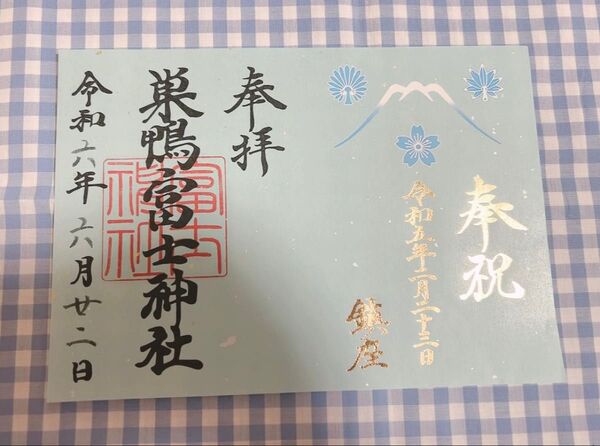 奉祝
令和五年二月二十三日
鎮座
奉拝
巣鴨富士神社
令和六年六月廿二日
富士
神社